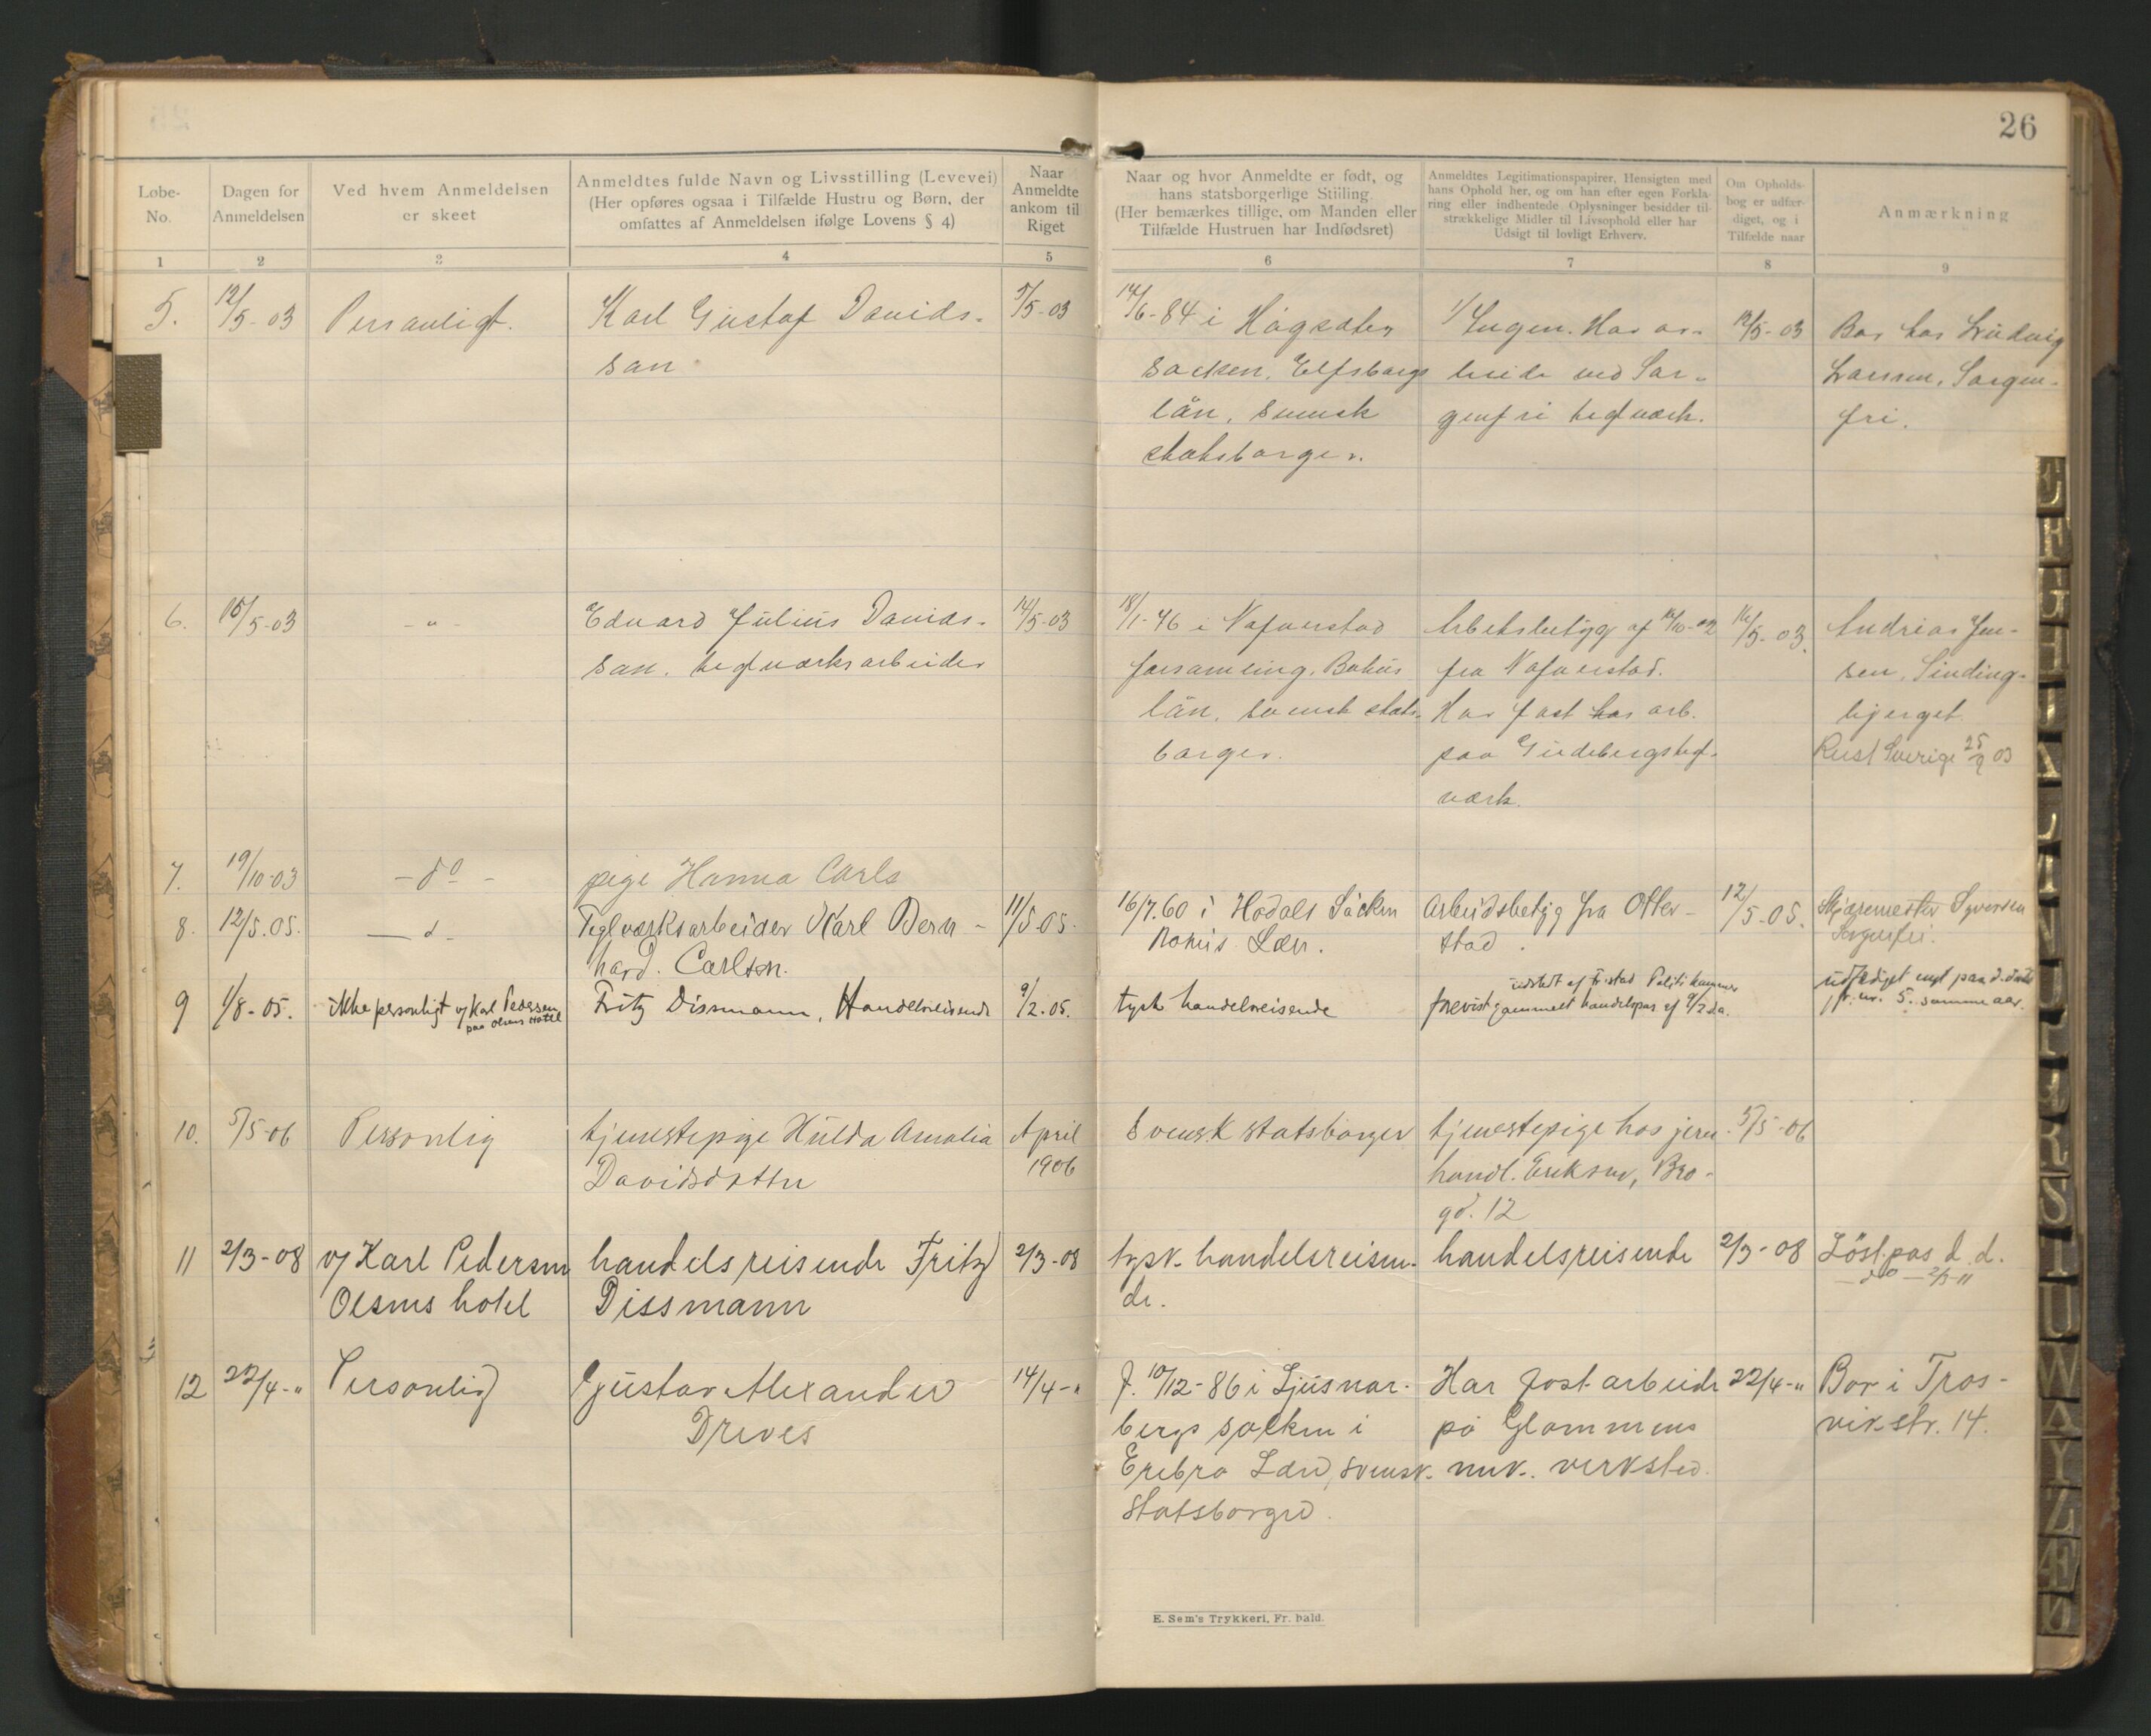 26
Løbe-
No.
Dagen for
Anmeldelsen
Ved hvem Anmeldelsen
er skeet
Anmeldtes fulde Navn og Livsstilling (Levevei)
(Her opføres ogsaa i Tilfælde Hustru og Børn, der
omfattes af Anmeldelsen ifølge Lovens § 4)
Naar
Anmeldte
ankom til
Riget
Naar og hvor Anmeldte er født, og
hans statsborgerlige Stiiling.
(Her bemærkes tillige, om Manden eller
Tilfælde Hustruen har Indfødsret)
Anmeldtes Legitimationspapirer, Hensigten med
hans Ophold her, og om han efter egen Forkla-
ring eller indhentede Oplysninger besidder til-
strækkelige Midler til Livsophold eller har
Udsigt til lovligt Erhverv.
Om Opholds-
bog er udfær-
diget, og i
Tilfælde naar
Anmærkning
1 2 3 4 5 6 7 8 9
5.
12/5-03
Personligt.
Karl Gustaf Davids-
son
5/5-03
14/6-84 i Högsäter
socken, Elfsborgs
län, svensk
statsborger.
1/ Ingen. Har ar-
beide ved Sor-
genfri teglværk.
12/5-03
Bor hos Ludvig
Larsen, Sorgen-
fri.
6.
15/5-03
- " -
Edvard Julius Davids-
son, teglværksarbeider
14/5-03
18/1-46 i Nafverstad
forsamling, Bohus
län, svensk stats-
borger.
Arbetsbetyg af 16/10-02
fra Nafverstad.
Har fast har arb.
paa Gudebergs tegl-
værk.
16/5-03.
Andreas Jen-
sen, Sinding-
bjerget
Reist Sverige 25/9 03
7.
19/10-03
- do -
pige Hanna Carls
8.
12/5.05.
- d -
Teglværksarbeider Karl Bern-
hard. Carlson.
11/5-05.
16/7.60 i Hodals Säcken
Bohus Læn.
Arbeidsbetyg fra Otter-
stad.
12/5-05.
Skjæremester Syversen
Sorgenfri.
9
1/8-05.
ikke personligt v/ Karl Pedersen
paa Olsens Hotel
Fritz Dissmann, Handelsreisende
9/2.05.
tysk handelsreisende
udstedt af Fr.stad Politikammer
forevist gammelt handelspas af 9/2 d.a.
udfærdiget nyt pas d.d.
jfr. nr. 5. samme aar.
10.
5/5-06
Personlig
tjenestepige Hulda Amalia
Davidsdotter
April
1906
Svensk statsborger
tjenestepige hos jern-
handl. Eriksen, Bro-
gd. 12
5/5-06
11
2/3-08
v/ Karl Pedersen
Olsens hotel
handelsreisende Fritz
Dissmann
2/3-08
tysk handelsreisen-
de.
handelsreisende
2/3-08
Löst pas d.d.
- do - 2/3-11
12
22/4-"
Personlig
Gustav Alexander
Dreves
14/4-"
f. 10/12-86 i Ljusnar-
bergs socken i
Erebro Læn, svensk
statsborger.
Har fast arbeide
på Glommens
mek. verksted.
22/4-"
Bor i Tros-
vikstr. 14.
E. Sem's Trykkeri, Fr. hald.
E
F
G
H
I
K
L
M
N
P
R
S
T
U
W
Y
Z
Æ
Ø